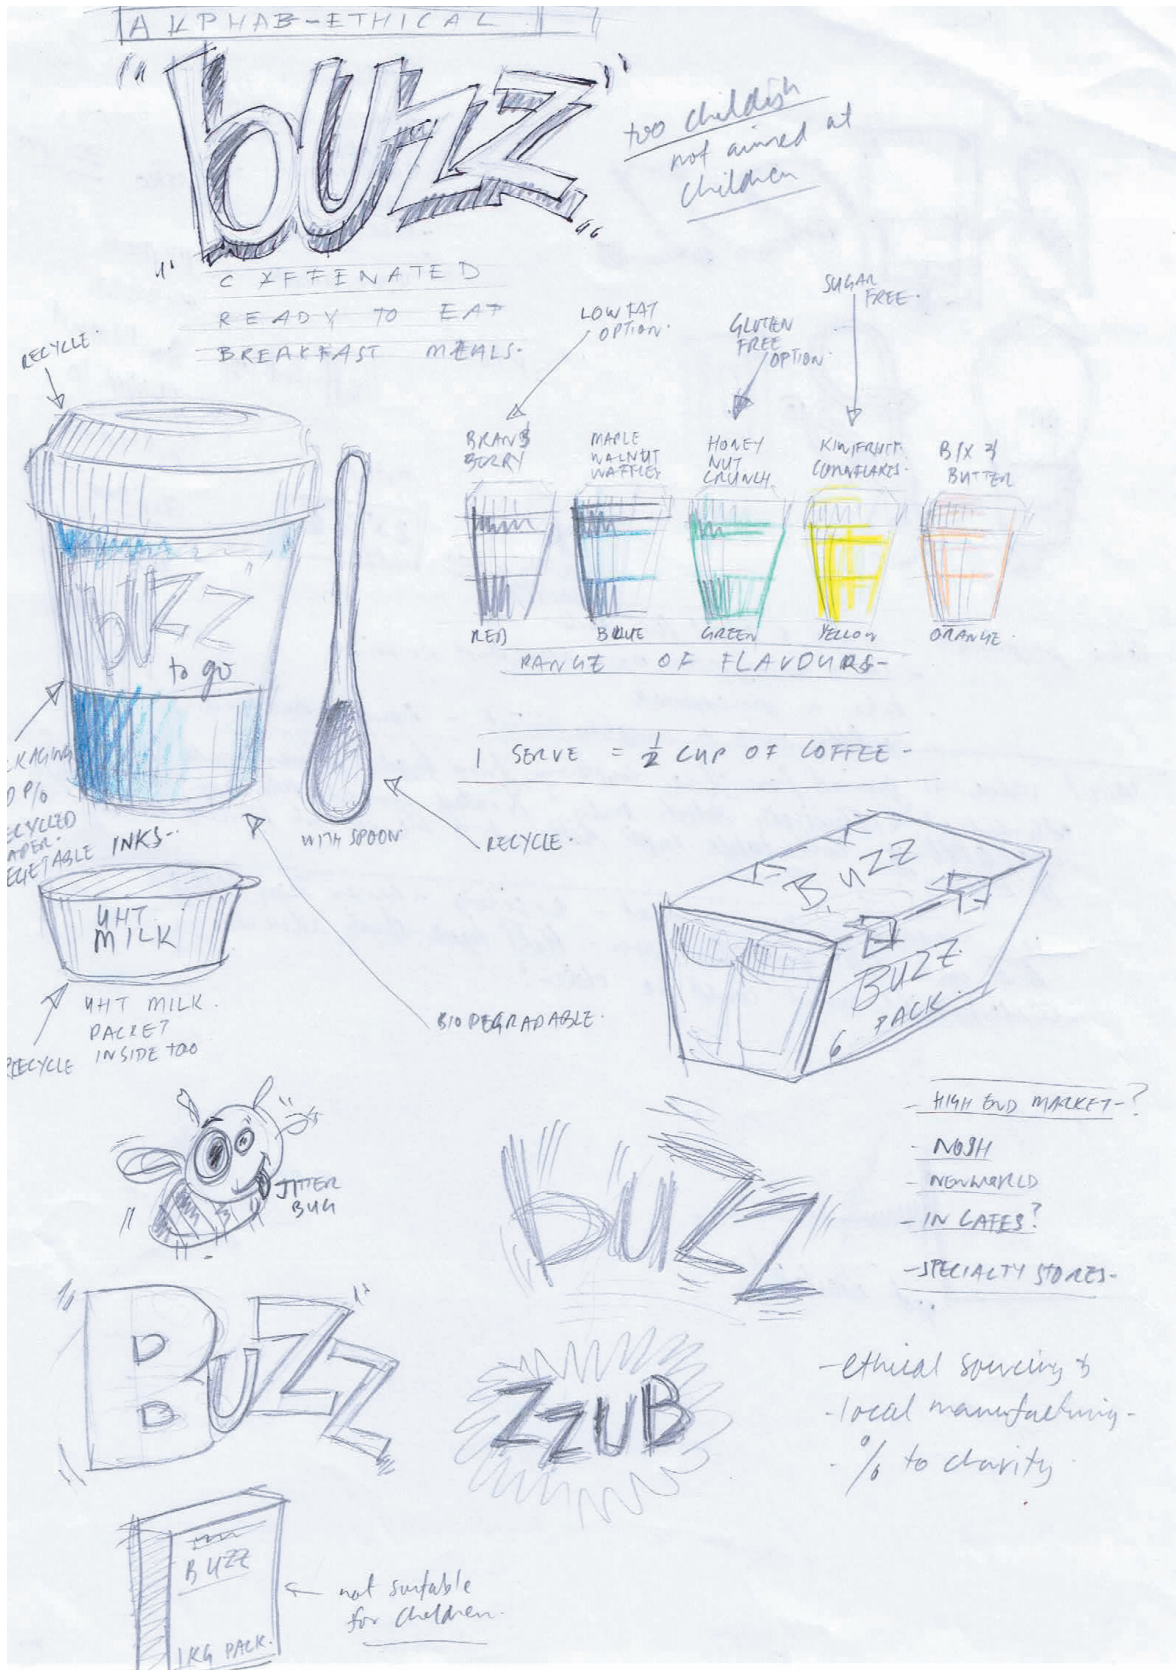 ALPHAB-ETHICAL
"buzz"
too childish
not aimed at
children
CAFFENATED
READY TO EAT
BREAKFAST MEALS.
RECYCLE.
LOW FAT
OPTION.
GLUTEN
FREE
OPTION.
SUGAR
FREE.
BRAN &
BERRY
MAPLE
WALNUT
WAFFLES
HONEY
NUT
CRUNCH
KIWIFRUIT
CORNFLAKES.
BIX &
BUTTER
RED
BLUE
GREEN
YELLOW
ORANGE.
RANGE OF FLAVOURS-
"buzz"
to go
1 SERVE = ½ CUP OF COFFEE-
CKAGING
0 P/o
ECYCLED
APER.
EGETABLE INKS-
WITH SPOON
RECYCLE.
UHT
MILK
UHT MILK.
PACKET
INSIDE TOO
RECYCLE
BIODEGRADABLE.
BUZZ
BUZZ
6 PACK.
JITTER
BUG
buzz
- HIGH END MARKET-?
- NOSH
- NEWWORLD
- IN CAFES?
- SPECIALTY STORES-
"BUZZ"
ZZUB
- ethical sourcing &
- local manufacturing-
- % to charity
BUZZ
1KG PACK.
not suitable
for children.